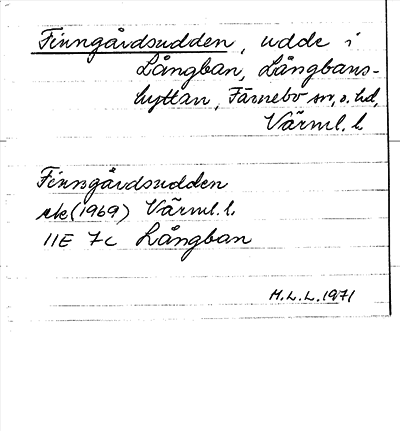 Finngårdsudden, udde i
Långban, Långbans-
hyttan, Färnebo sn, o. hd,
Värml. l.
Finngårdsudden
ek (1969) Värml. l.
11E 7c Långban
H.L.L. 1971